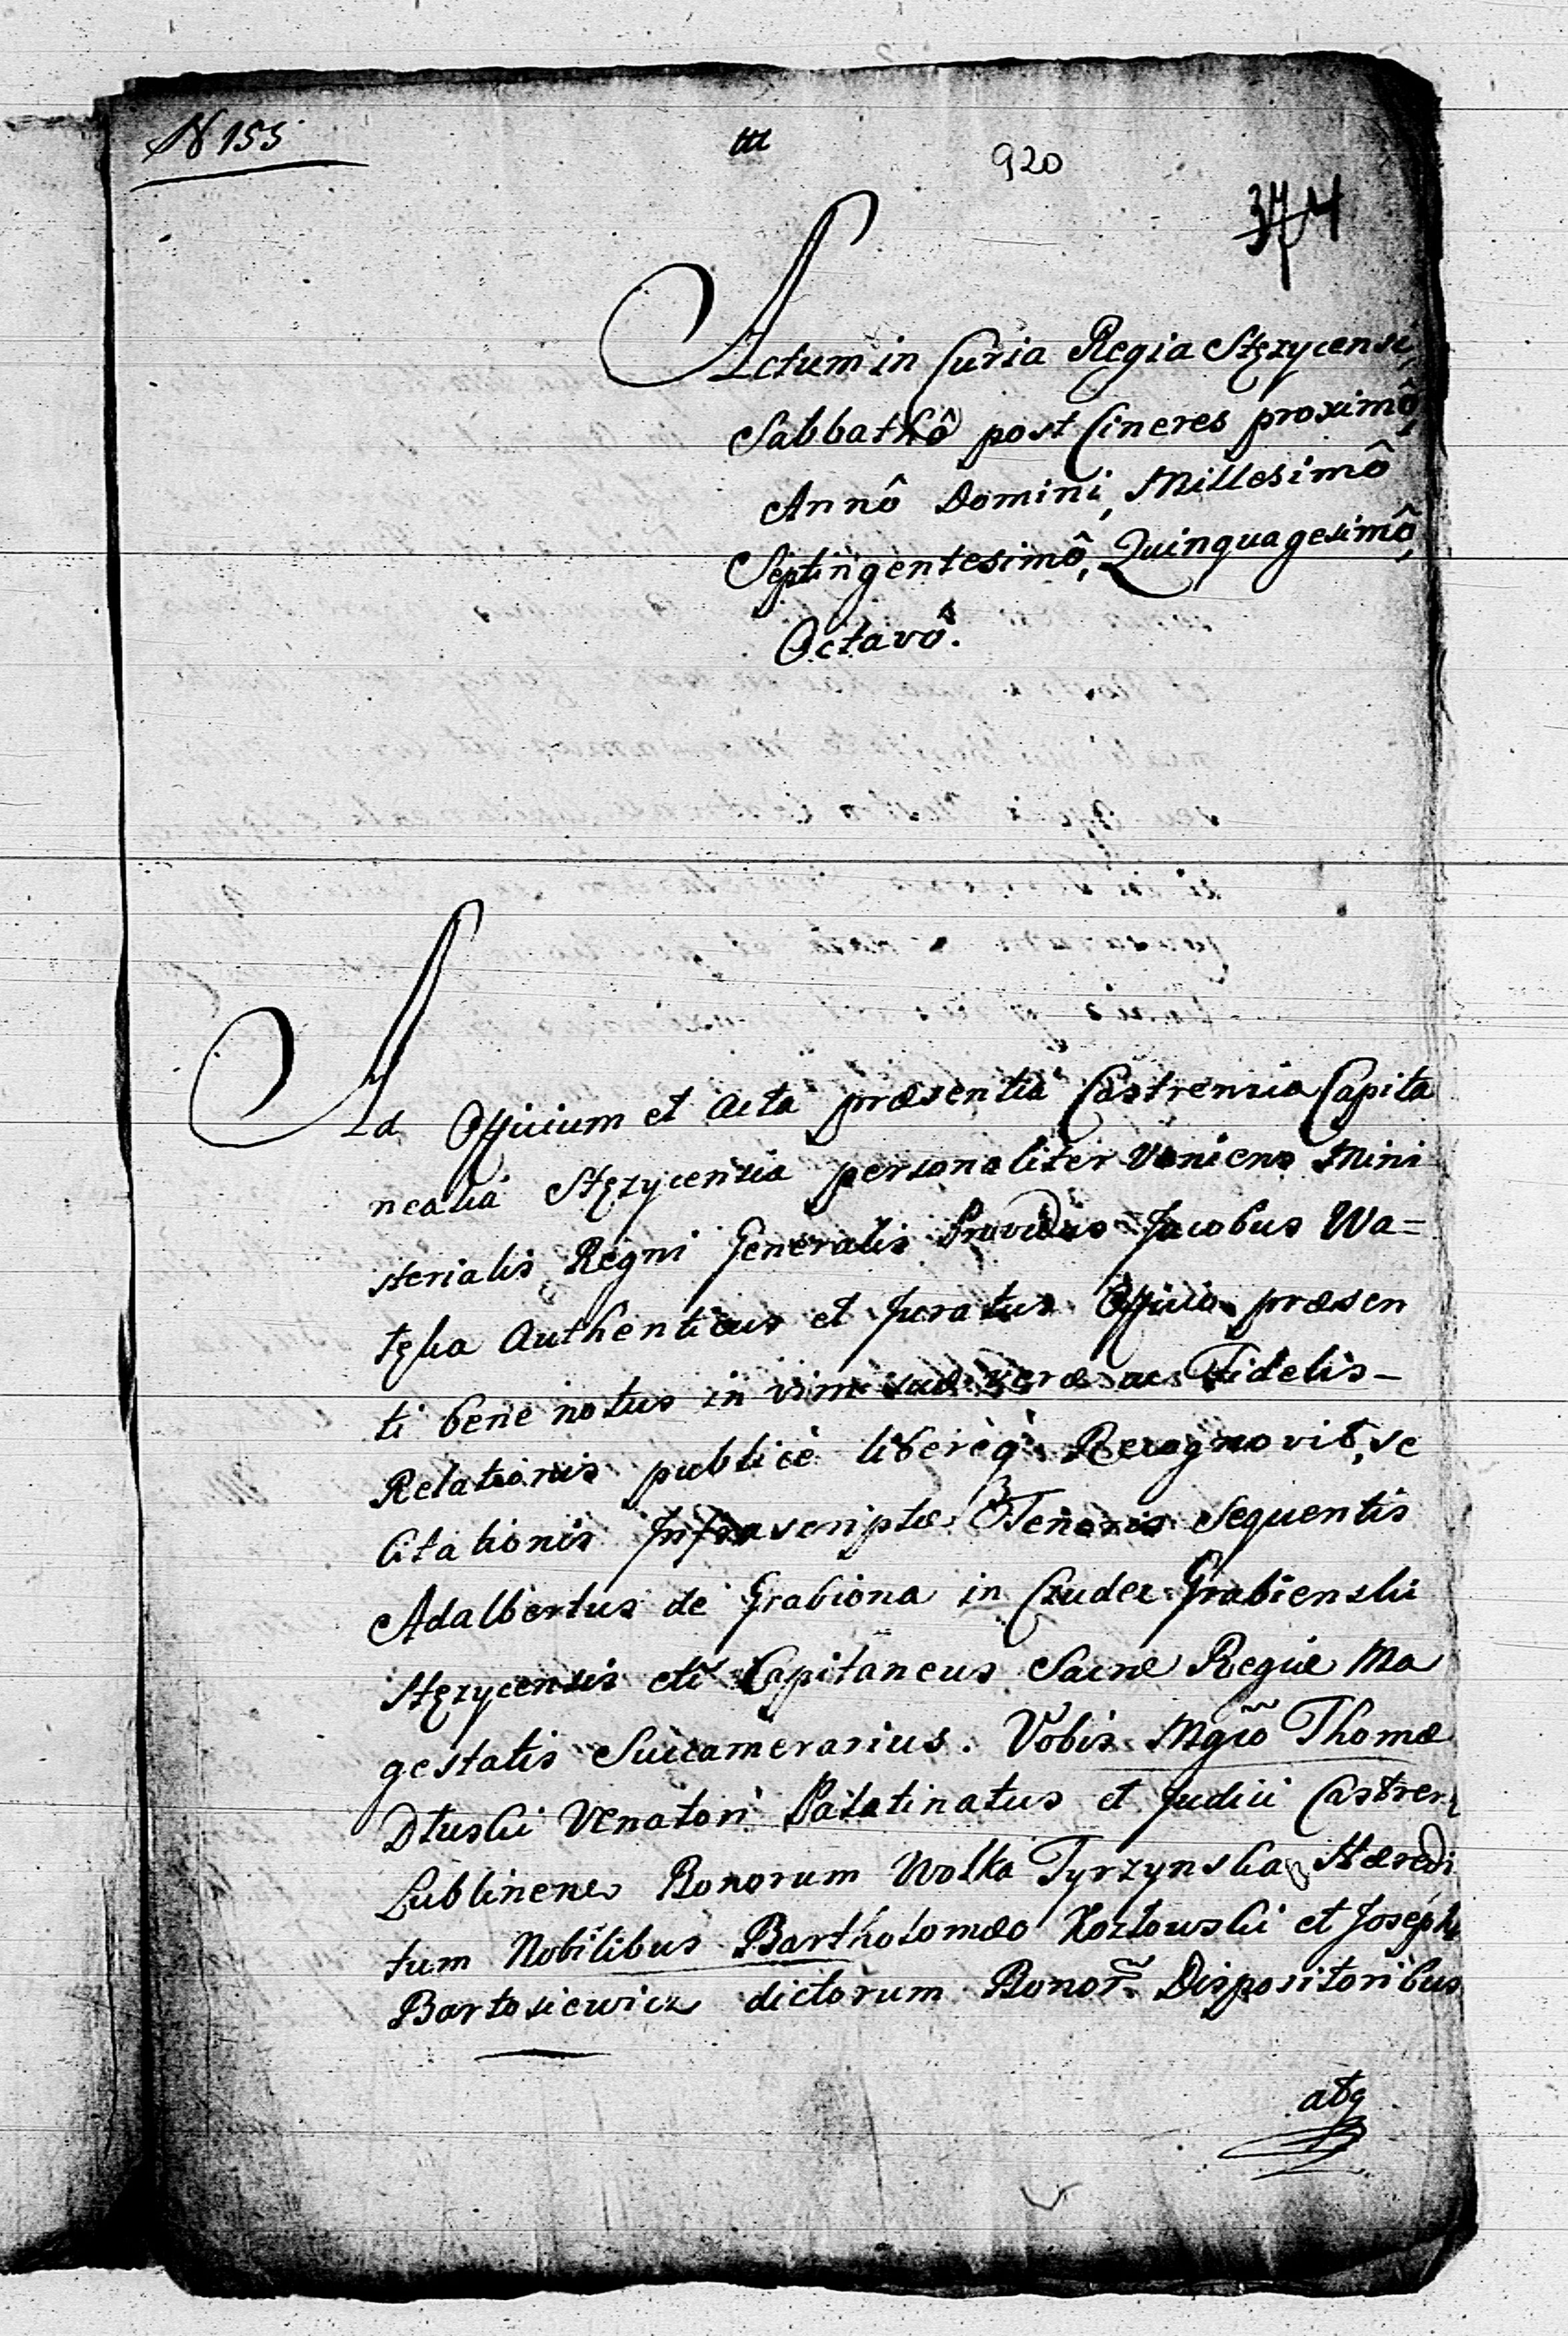 N 155
920
374
Actum in Curia Regia Stęzycensi
Sabbathô post Cineres proximô,
Annô Domini, Millesimô
Septingentesimô, Quinquagesimô,
Octavô.
Ad Officium et Acta præsentia Castrensia Capita
nealia Stęzycensia personaliter Veniens Mini
sterialis Regni Generalis Providus Jacobus Wa=
tęka Authenticus et Juratus Officio præsen
ti bene notus in vim suæ veræ ac Fidelis-
Relationis publicè liberèq; Recognovit, se
Citationis Infrascriptæ Tenoris Sequentis
Adalbertus de Grabiona in Czudec Grabienski
Stęzycensis Capitaneus Sacræ Regiæ Ma
gestatis Succamerarius. Vobis Mgco Thomæ
Dłuski Venatori Palatinatus et Judici Castren
Lublinens Bonorum Wolka Tyrzynska Hæredi
tum Nobilibus Bartholomæo Kozłowski et Josepho
Bartosiewicz dictorum Bonor̃ Dispositoribus
atq